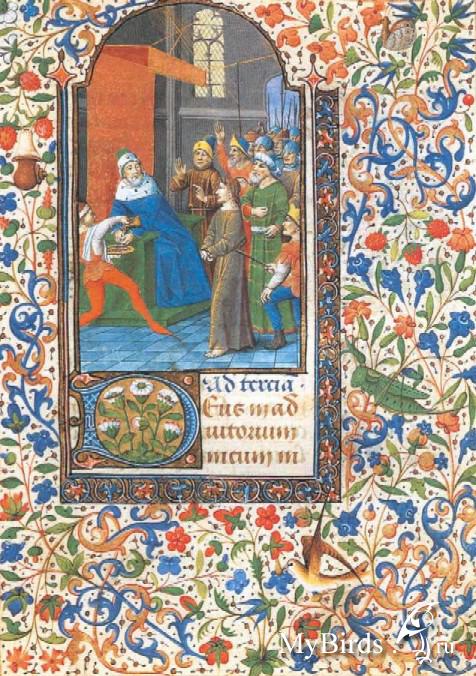 Ad tercia.
Deus in ad
iutorium
meum in
MyBirds.ru